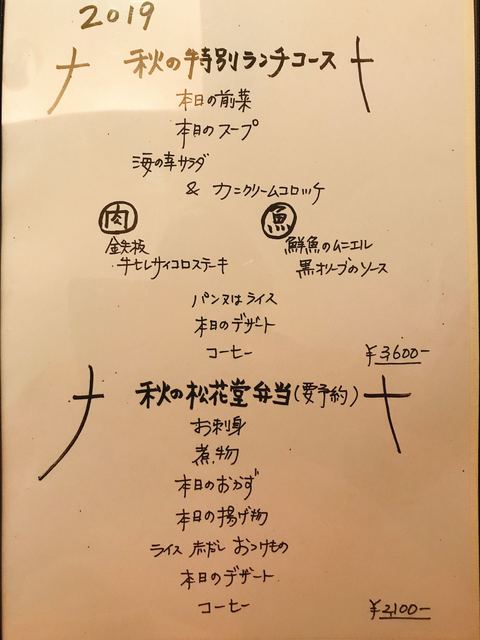 2019
秋の特別ランチコース
本日の前菜
本日のスープ
海の幸サラダ
& カニクリームコロッケ
肉 魚
鉄板 鮮魚のムニエル
牛ヒレサイコロステーキ 黒オリーブのソース
パン又はライス
本日のデザート
コーヒー
¥3,600-
秋の松花堂弁当(要予約)
お刺身
煮物
本日のおかず
本日の揚げ物
ライス 赤だし おつけもの
本日のデザート
コーヒー ¥2,100-